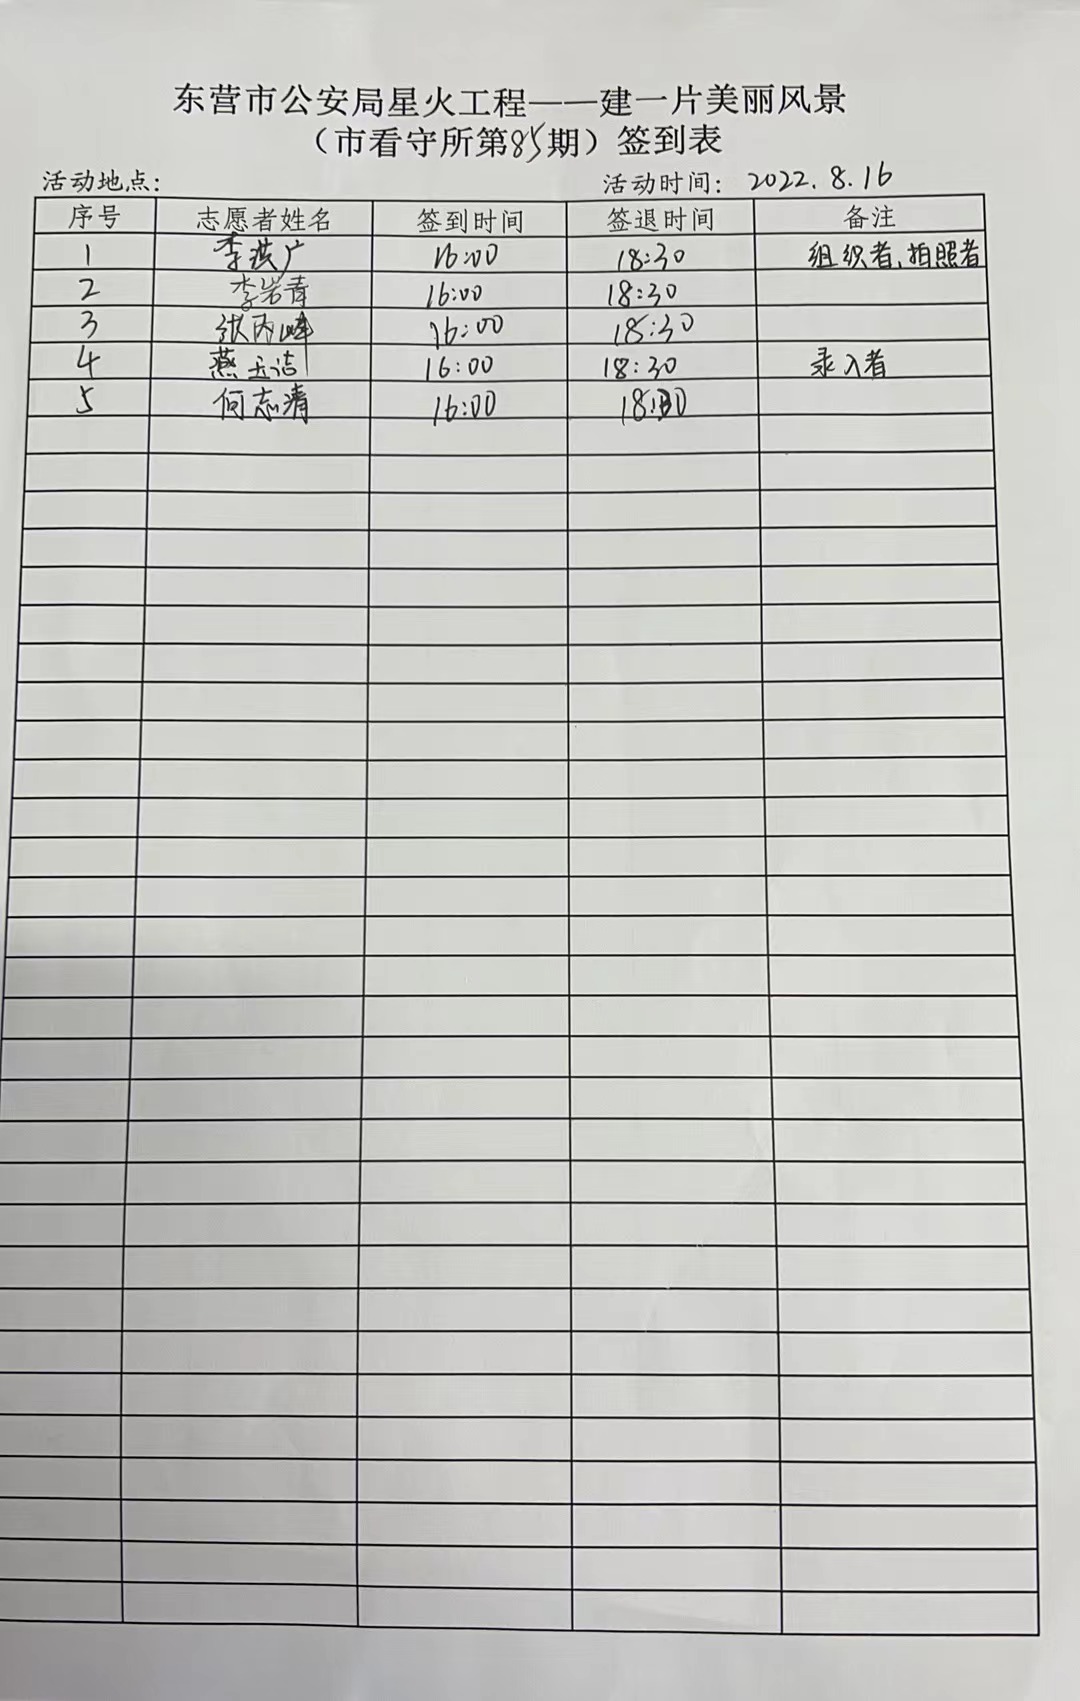 东营市公安局星火工程——建一片美丽风景
（市看守所第85期）签到表
活动地点： 活动时间：2022.8.16
序号 志愿者姓名 签到时间 签退时间 备注
1 李洪广 16:00 18:30 组织者、拍照者
2 李岩青 16:00 18:30
3 张丙峰 16:00 18:30
4 燕玉洁 16:00 18:30 录入者
5 何志清 16:00 18:30